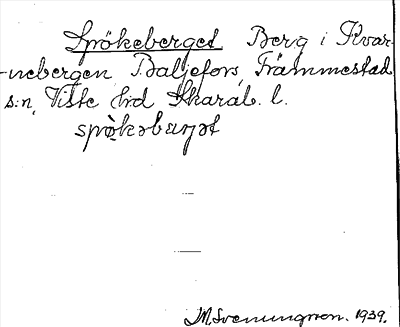 Spökeberget Berg i Kvar-
nebergen Baljefors, Främmestad
s:n, Viste hd Skarab. l.
spö̀kəbærjət
M. Svenungson. 1939.